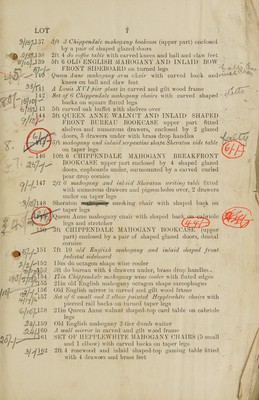 LOT
137 3ft 3 Chippendale mahogany bookcase (upper part) enclosed
by a pair of shaped glazed doors
138 2ft 4 do coffee table with carved knees and ball and claw feet
139 5ft 6 OLD ENGLISH MAHOGANY AND INLAID BOW
FRONT SIDEBOARD on turned legs
Queen Anne mahogany arm chair with carved back and
knees on ball and claw feet
A Louis XVI pier glass in carved and gilt wood frame
142 Set of 6 Chippendale mahogany chairs with carved shaped
backs on square fluted legs
143 5ft carved oak buffet with shelves over
144 5ft QUEEN ANNE WALNUT AND INLAID SHAPED
FRONT BUREAU BOOKCASE upper part fitted
shelves and numerous drawers, enclosed by 2 glazed
doors, 3 drawers under with brass drop handles
mahogany and inlaid serpentine shape Sheraton side table
on taper legs
146 10ft 6 CHIPPENDALE MAHOGANY BREAKFRONT
BOOKCASE upper part enclosed by 4 shaped glazed
doors, cupboards under, surmounted by a carved
pour drop cornice
147 2ft 6 mahogany and inlaid Sheraton writing table fitted
with numerous drawers and pigeon-holes over, 2 drawers
under on taper legs
148 Sheraton smoking chair with shaped back on
taper legs
Queen Anne mahogany chair with shaped back on cabriole
legs and stretcher
150 3ft CHIPPENDALE MAHOGANY BOOKCASE (upper
part) enclosed by a pair of shaped glazed doors, dental
cornice
151 7ft 10 old English mahogany and inlaid shaped front
pedestal sideboard
152 15in do octagon shape wine cooler
153 3ft do bureau with 4 drawers under, brass drop handles
154 17in Chippendale mahogany wine cooler with fluted edges
155 21in old English mahogany octagon shape sarcophagus
156 Old English mirror in carved and gilt wood frame
157 Set of 6 small and 2 elbow painted Hepplewhite chairs with
pierced rail backs on turned taper legs
158 27in Queen Anne walnut shaped-top card table on cabriole
legs
159 Old English mahogany 2-tier dumb waiter
160 A small mirror in carved and gilt wood frame
161 SET OF HEPPLEWHITE MAHOGANY CHAIRS (5 small
and 1 elbow) with carved backs on taper legs
162 2ft 4 rosewood and inlaid shaped-top gaming table fitted
with 4 drawers and brass feet